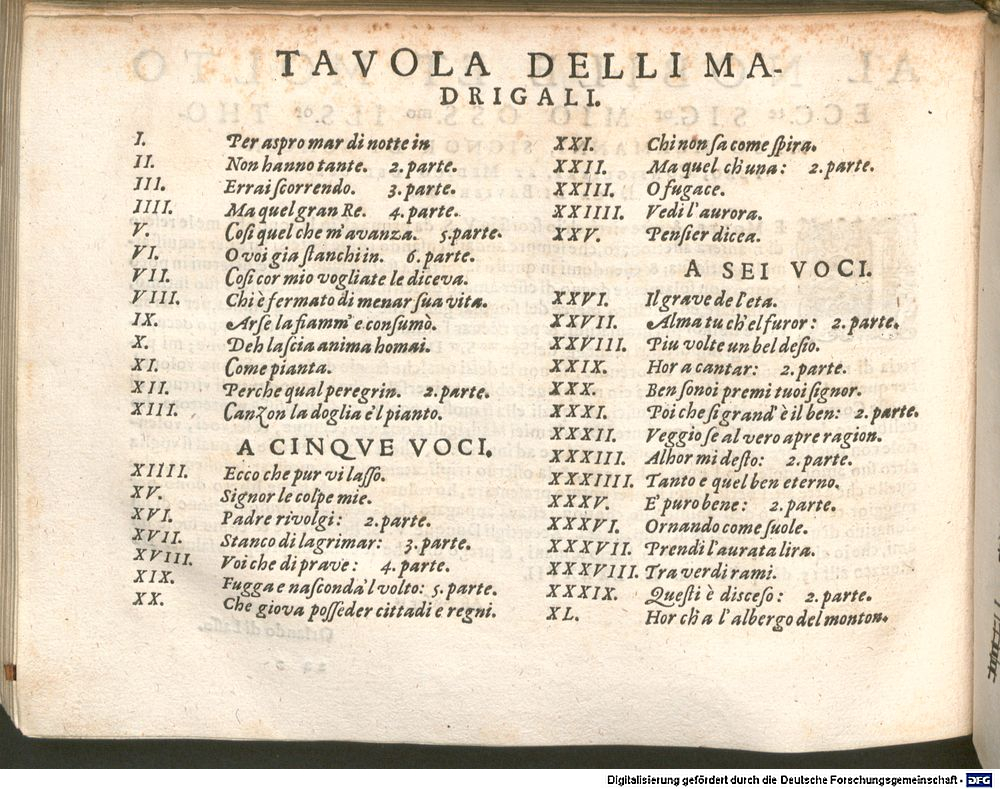 TAVOLA DELLI MA-
DRIGALI.
I. Per aspro mar di notte in
II. Non hanno tante. 2. parte.
III. Errai scorrendo. 3. parte.
IIII. Ma quel gran Re. 4. parte.
V. Così quel che m'avanza. 5. parte.
VI. O voi gia stanchi in. 6. parte.
VII. Così cor mio vogliate le diceva.
VIII. Chi è fermato di menar sua vita.
IX. Arse la fiamm' e consumò.
X. Deh lascia anima homai.
XI. Come pianta.
XII. Perche qual peregrin. 2. parte.
XIII. Canzon la doglia e'l pianto.
A CINQVE VOCI.
XIIII. Ecco che pur vi lasso.
XV. Signor le colpe mie.
XVI. Padre rivolgi: 2. parte.
XVII. Stanco di lagrimar: 3. parte.
XVIII. Voi che di prave: 4. parte.
XIX. Fugga e nasconda'l volto: 5. parte.
XX. Che giova posseder cittadi e regni.
XXI. Chi non sa come spira.
XXII. Ma quel ch'una: 2. parte.
XXIII. O fugace.
XXIIII. Vedi l'aurora.
XXV. Pensier dicea.
A SEI VOCI.
XXVI. Il grave de l'eta.
XXVII. Alma tu ch'el furor: 2. parte.
XXVIII. Piu volte un bel desio.
XXIX. Hor a cantar: 2. parte.
XXX. Ben sono i premi tuoi signor.
XXXI. Poi che si grand' è il ben: 2. parte.
XXXII. Veggio se al vero apre ragion.
XXXIII. Alhor mi desto: 2. parte.
XXXIIII. Tanto e quel ben eterno.
XXXV. E' puro bene: 2. parte.
XXXVI. Ornando come suole.
XXXVII. Prendi l'aurata lira.
XXXVIII. Tra verdi rami.
XXXIX. Questi è disceso: 2. parte.
XL. Hor ch'a l'albergo del monton.
Digitalisierung gefördert durch die Deutsche Forschungsgemeinschaft - DFG